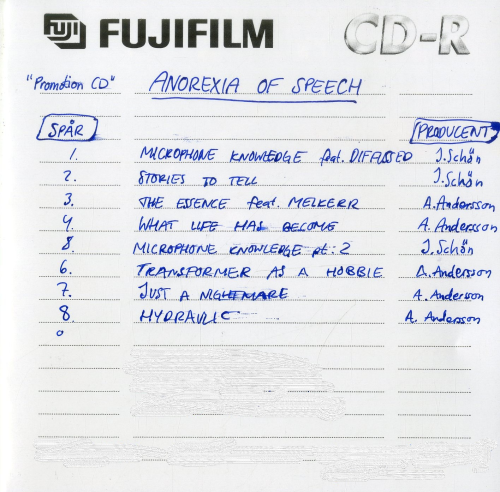 FUJI FUJIFILM CD-R
"Promotion CD" ANOREXIA OF SPEECH
SPÅR PRODUCENT
1. MICROPHONE KNOWLEDGE feat. DIFFUSED J.Schön
2. STORIES TO TELL J.Schön
3. THE ESSENCE feat. MELKERR A.Andersson
4. WHAT LIFE HAS BECOME A. Andersson
8. MICROPHONE KNOWLEDGE pt: 2 J.Schön
6. TRANSFORMER AS A HOBBIE A.Andersson
7. JUST A NIGHTMARE A. Andersson
8. HYDRAULIC A. Andersson